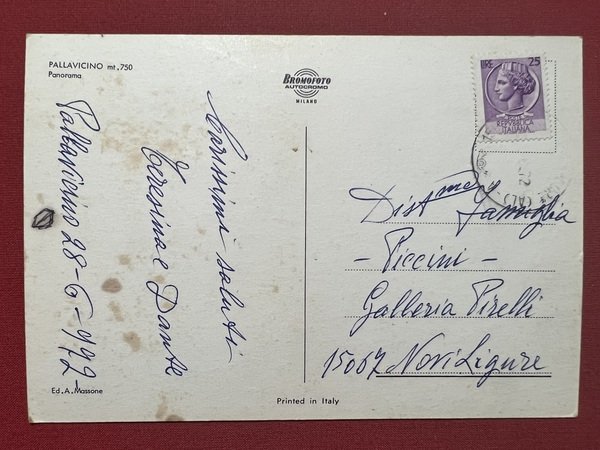 PALLAVICINO mt. 750
Panorama
BROMOFOTO
AUTOCROMO
MILANO
LIRE 25
REPVBBLICA
ITALIANA
Carissimi saluti
Teresina e Dante
Pallavicino 28-6-972
Dist.ma Famiglia
- Piccini -
Galleria Pirelli
15067 Novi Ligure
Ed. A. Massone
Printed in Italy